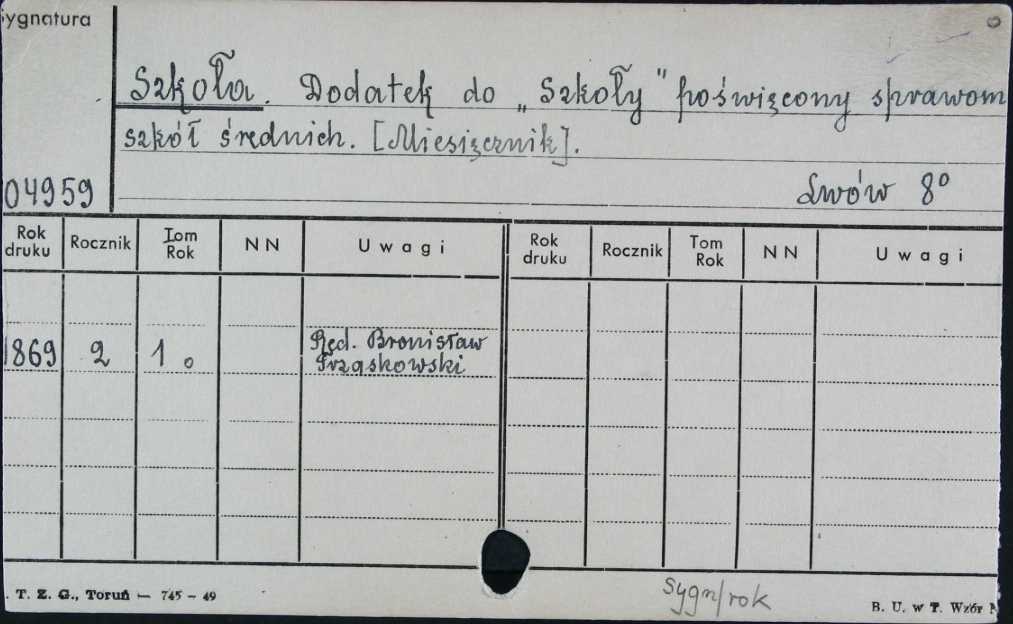 Sygnatura
Szkoła. Dodatek do „Szkoły" poświęcony sprawom
szkół średnich. [Miesięcznik].
04959
Lwów 8°
Rok druku Rocznik Tom Rok NN Uwagi Rok druku Rocznik Tom Rok NN Uwagi
1869 2 1 Red. Bronisław
Trzaskowski
. T. Z. G., Toruń — 745 – 49
Sygn/rok
B. U. w T. Wzór